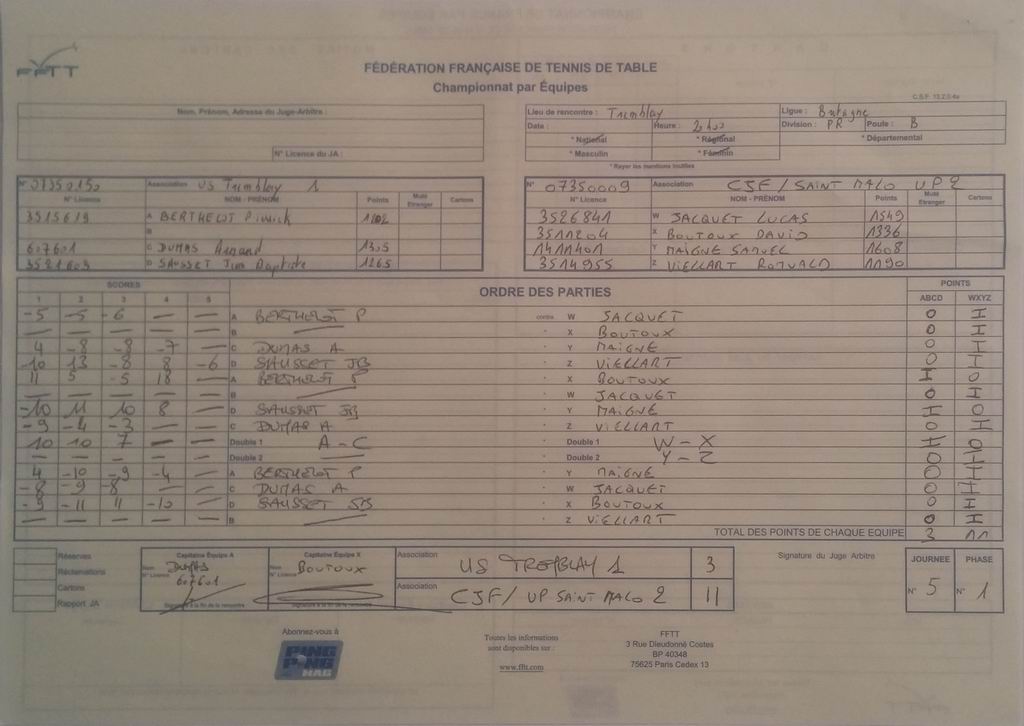 FFTT
FÉDÉRATION FRANÇAISE DE TENNIS DE TABLE
Championnat par Équipes
C.S.F. 13.2.0.4a
Nom, Prénom, Adresse du Juge-Arbitre :
N° Licence du JA :
Lieu de rencontre : Trimblay Ligue : Bretagne
Date : Heure : 2h00 Division : PR Poule : B
* National * Régional * Départemental
* Masculin * Féminin
* Rayer les mentions inutiles
N° 07350150 Association US Trimblay 1
N° Licence NOM - PRÉNOM Points Muté Etranger Cartons
3515619 A BERTHELOT P 1102
B
607601 C DUMAS Arnaud 1305
3521603 D SAUSSET Jean Baptiste 1265
N° 07350009 Association CJF/SAINT MALO UP2
N° Licence NOM - PRÉNOM Points Muté Etranger Cartons
3526841 W JACQUET LUCAS 1549
3511204 X BOUTOUX DAVID 1336
1411401 Y MAIGNE SAMUEL 1608
3514955 Z VIELLART ROMUALD 1190
SCORES ORDRE DES PARTIES POINTS
1 2 3 4 5 ABCD WXYZ
-5 -5 -6 — — A BERTHELOT P contre W JACQUET 0 I
— — — — — B — " X BOUTOUX 0 I
4 -8 -8 -7 — C DUMAS A " Y MAIGNE 0 I
-10 13 -8 8 -6 D SAUSSET JB " Z VIELLART 0 I
11 5 -5 18 — A BERTHELOT P " X BOUTOUX I 0
— — — — — B — " W JACQUET 0 I
-10 11 10 8 — D SAUSSET JB " Y MAIGNE I 0
-9 -4 -3 — — C DUMAS A " Z VIELLART 0 I
10 10 7 — — Double 1 A-C Double 1 W-X I 0
— — — — — Double 2 — Double 2 Y-Z 0 I
4 -10 -9 -4 — A BERTHELOT P " Y MAIGNE 0 I
-8 -9 -8 — — C DUMAS A " W JACQUET 0 I
-9 -11 11 -10 — D SAUSSET JB " X BOUTOUX 0 I
— — — — — B — " Z VIELLART 0 I
TOTAL DES POINTS DE CHAQUE EQUIPE 3 11
Réserves
Réclamations
Cartons
Rapport JA
Capitaine Équipe A
Nom DUMAS
N° Licence 607601
Signature à la fin de la rencontre
Capitaine Équipe X
Nom BOUTOUX
N° Licence
Signature à la fin de la rencontre
Association US TREMBLAY 1 3
Association CJF/ UP SAINT MALO 2 11
Signature du Juge Arbitre
JOURNEE PHASE
N° 5 N° 1
Abonnez-vous à
PING PONG MAG
Toutes les informations
sont disponibles sur :
www.fftt.com
FFTT
3 Rue Dieudonné Costes
BP 40348
75625 Paris Cedex 13